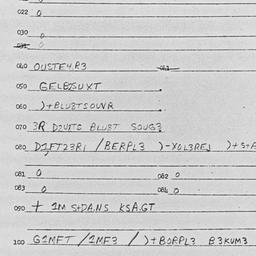 022 0
030 0
0
040 OUSTE4.R3
050 GELB2SUXT
060 )+BLUBTSOUVR
070 3R D2UITS BLUBT SOUG3
080 D1FT23RI /BERPL3 )-XOL3REJ )+S+A
081 0 082 0
083 0 084 0
090 + 1M S+DA.NS KSA.GT
100 G1MFT /1MF3 / )+BORPL3 B3KUM3